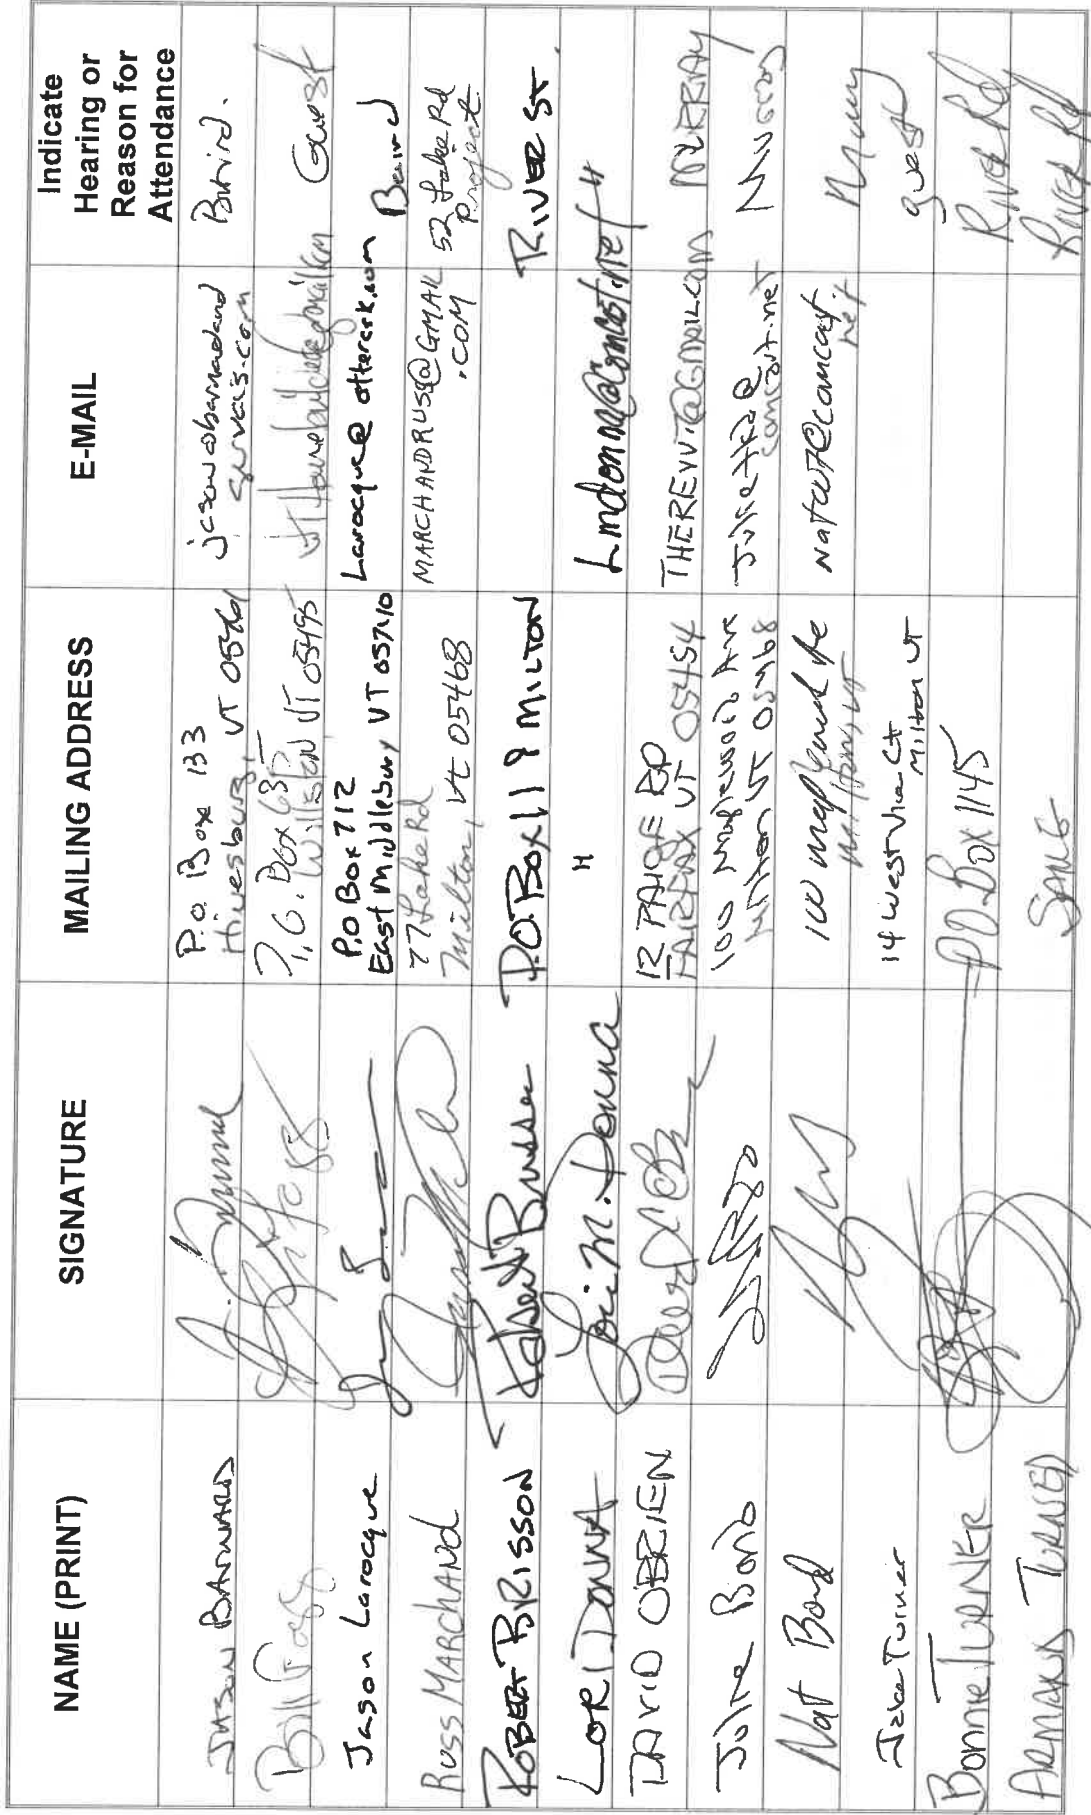 NAME (PRINT) SIGNATURE MAILING ADDRESS E-MAIL Indicate Hearing or Reason for Attendance
JASON BARNARD P.O. Box 133
Hinesburg, VT 05461
Bill P.O. Box 635
Williston VT 05495 Guest
Jason Larocque P.O Box 712
East Middlebury VT 05740 Larocque@ottercrk.com
Russ MARCHAND 77 Lake Rd
Milton, Vt 05468 MARCHANDRUSS@GMAIL
.COM 52 Lake Rd
Project
ROBERT BRISSON Robert Brisson P.O.Box 118 MILTON RIVER ST.
LORI DONNA Lori M. Donna " "
DAVID OBRIEN 12 PAIGE RD
FAIRFAX VT 05454 THEREVVT@GMAIL.COM MURRAY
Julie Bond 100 Ave
Milton VT 05468 comcast.net
Nat Bond 100
Milton, VT comcast.
net
Jake Turner 14 Westview Ct
Milton VT guest
Bonnie TURNER P.O. Box 1145 River Rd
ARMAND TURNER SAME River Rd